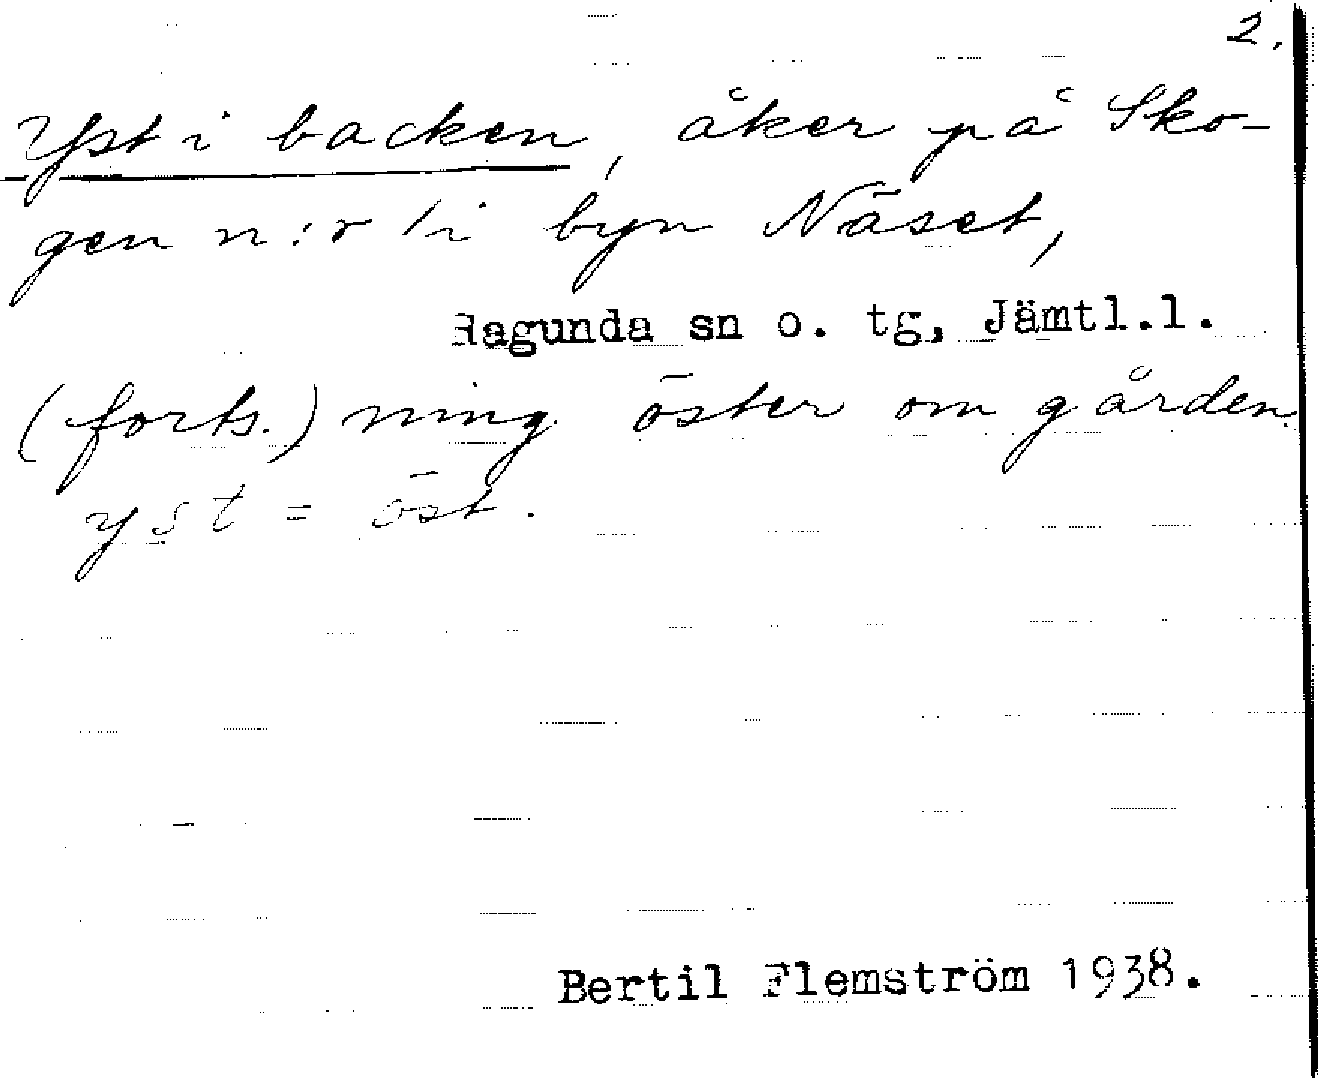 2.
Yst i backen, åker på Sko-
gen n:r 1 i byn Näset,
Ragunda sn o. tg, Jämtl.l.
(forts.) ning öster om gården.
yst = öst.
Bertil Flemström 1938.